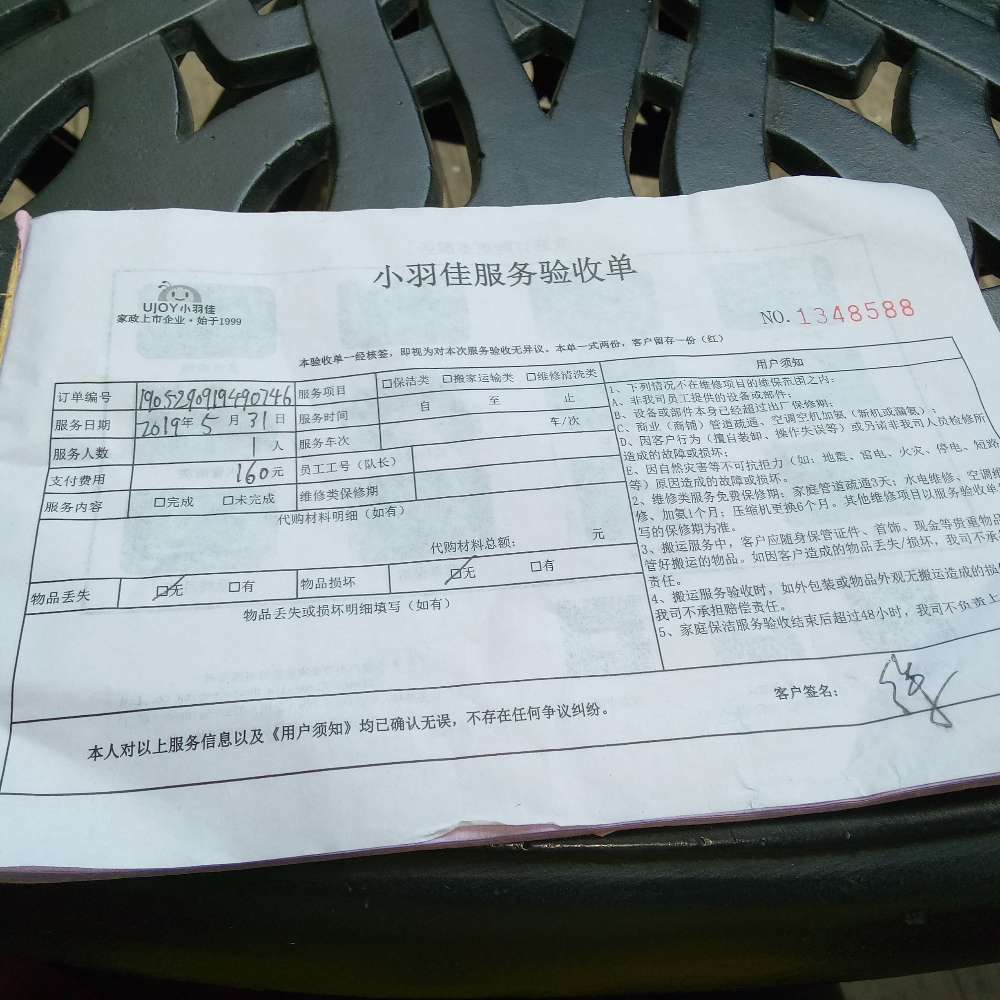 小羽佳服务验收单
UJOY小羽佳
家政上市企业·始于1999
NO. 1348588
本验收单一经核签，即视为对本次服务验收无异议。本单一式两份，客户留存一份（红）
订单编号 190529091949​0746 服务项目 □保洁类 □搬家运输类 □维修清洗类
服务日期 2019年 5 月 31 日 服务时间 自 至 止
服务人数 1 人 服务车次 车/次
支付费用 160元 员工工号（队长）
服务内容 □完成 □未完成 维修类保修期
代购材料明细（如有）
代购材料总额： 元
物品丢失 □无 □有 物品损坏 □无 □有
物品丢失或损坏明细填写（如有）
用户须知
1、下列情况不在维修项目的维保范围之内：
A、非我司员工提供的设备或部件；
B、设备或部件本身已经超过出厂保修期；
C、商业（商铺）管道疏通、空调空机加氨（新机或漏氨）；
D、因客户行为（擅自装卸、操作失误等）或另请非我司人员检修所
造成的故障或损坏；
E、因自然灾害等不可抗拒力（如：地震、雷电、火灾、停电、短路
等）原因造成的故障或损坏。
2、维修类服务免费保修期：家庭管道疏通3天；水电维修、空调维
修、加氨1个月；压缩机更换6个月。其他维修项目以服务验收单
写的保修期为准。
3、搬运服务中，客户应随身保管证件、首饰、现金等贵重物品
管好搬运的物品。如因客户造成的物品丢失/损坏，我司不承
责任。
4、搬运服务验收时，如外包装或物品外观无搬运造成的损
我司不承担赔偿责任。
5、家庭保洁服务验收结束后超过48小时，我司不负责上
本人对以上服务信息以及《用户须知》均已确认无误，不存在任何争议纠纷。
客户签名：